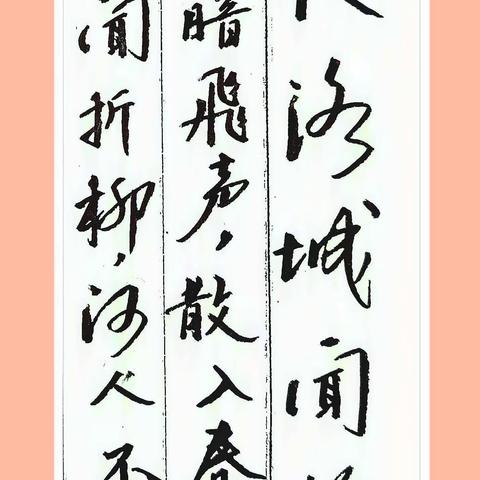 洛城闻
暗飛声，散入春
闻折柳，何人不